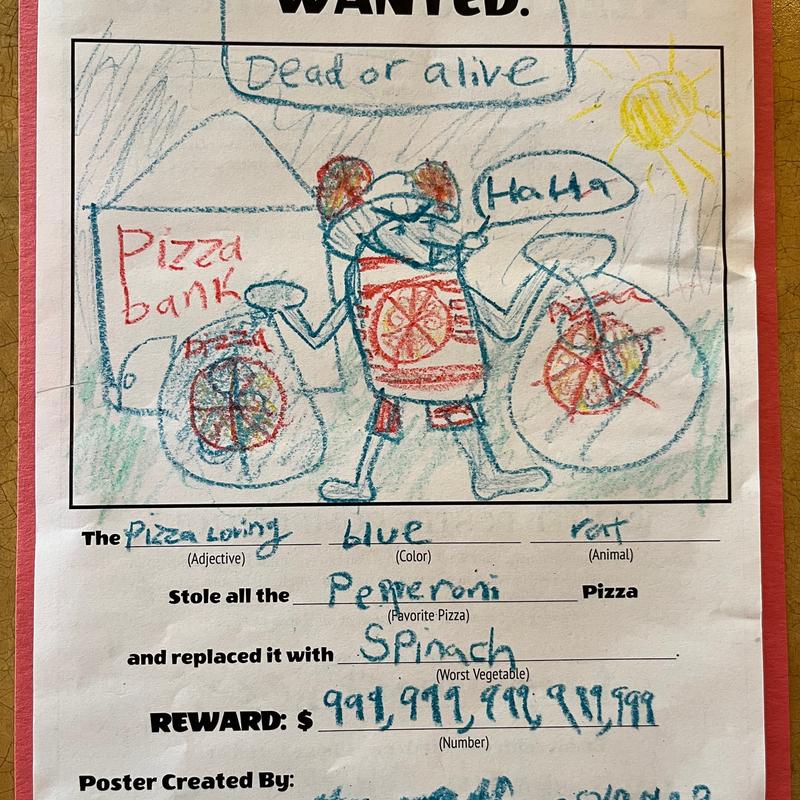 WANTED:
Dead or alive
HaHa
Pizza
bank
pizza
pizza
The Pizza Loving blue rat
(Adjective) (Color) (Animal)
Stole all the Pepperoni Pizza
(Favorite Pizza)
and replaced it with Spinach.
(Worst Vegetable)
REWARD: $ 999,999,999,999,999
(Number)
Poster Created By: